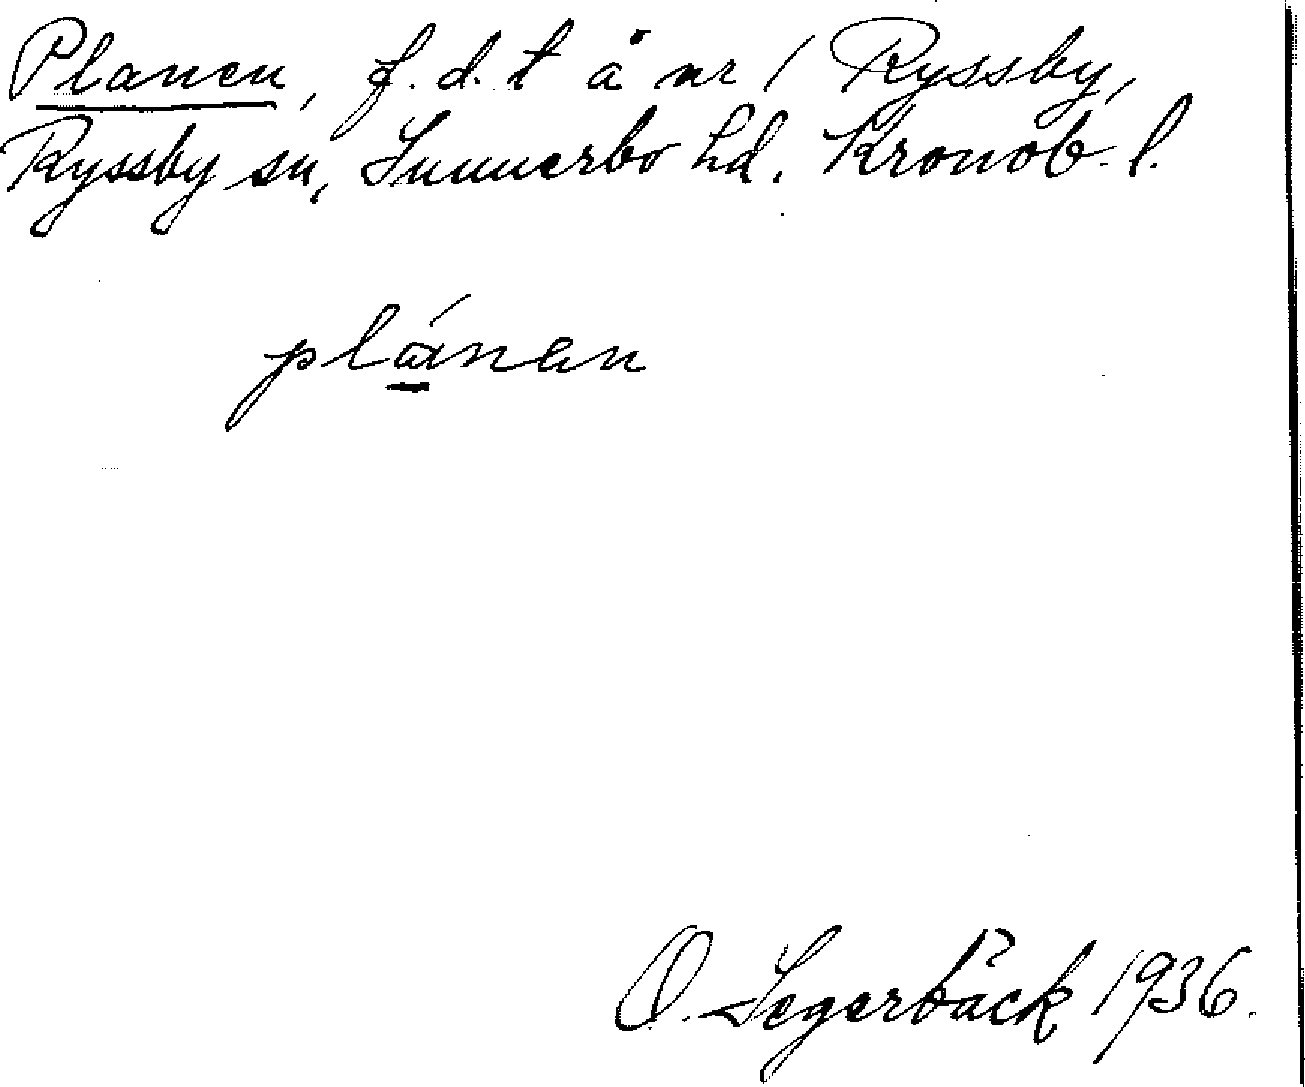 Planen, f. d. t å nr 1 Ryssby,
Ryssby sn, Sunnerbo hd. Kronob. l.
plánən
O. Segerbäck 1936.